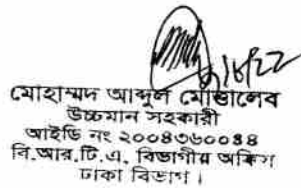 8/16/22
মোহাম্মদ আব্দুল মোত্তালেব
উচ্চমান সহকারী
আইডি নং ২০০৪৩৬০০৪৪
বি.আর.টি.এ, বিভাগীয় অফিস
ঢাকা বিভাগ।